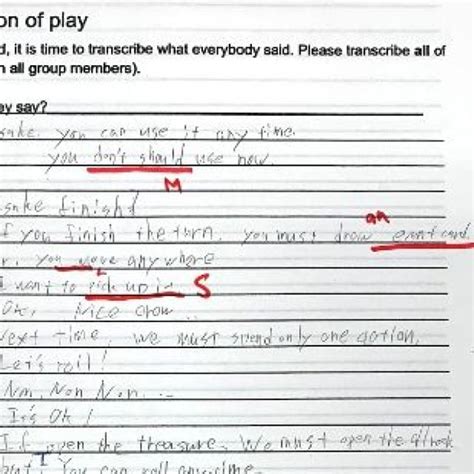 on of play
d, it is time to transcribe what everybody said. Please transcribe all of
n all group members).
ey say?
sake. you can use it any time.
you don't should use now.
M
sake finish?
an
f you finish the turn, you must draw event card.
r. you move any where
I want to pick up it S
Ok, Nice draw..
Next time, we must spend only one action,
Let's roll!
Non, Non Non...
It's Ok!
If open the treasure, We must open the
I
You can roll anytime.